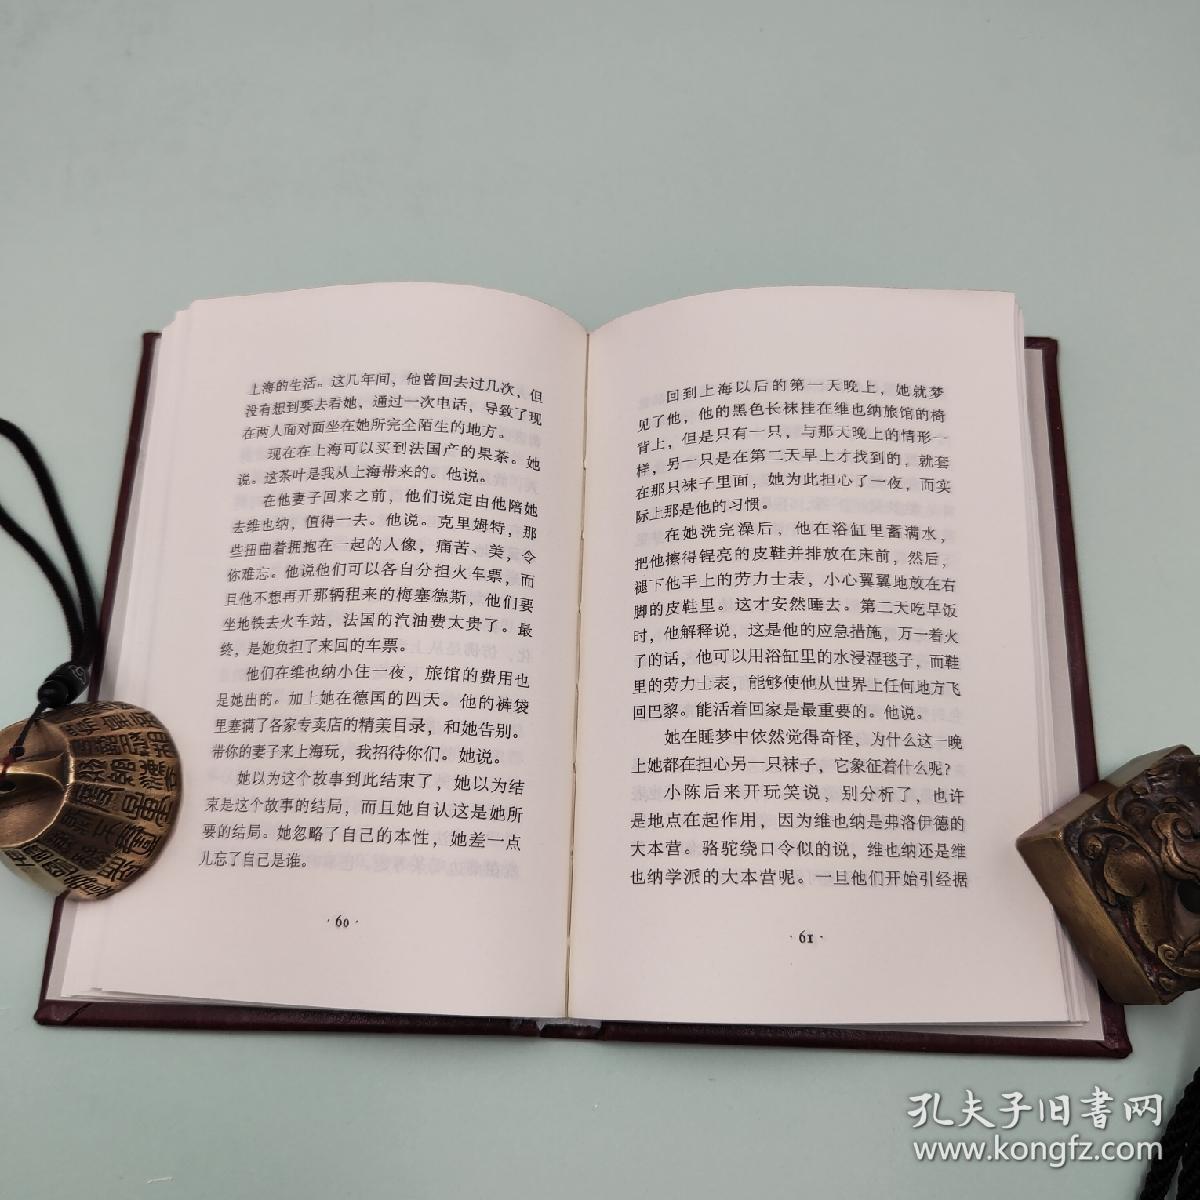 上海的生活。这几年间，他曾回去过几次，但
没有想到要去看她，通过一次电话，导致了现
在两人面对面坐在她所完全陌生的地方。
现在在上海可以买到法国产的果茶。她
说。这茶叶是我从上海带来的。他说。
在他妻子回来之前，他们说定由他陪她
去维也纳，值得一去。他说。克里姆特，那
些扭曲着拥抱在一起的人像，痛苦、美，令
你难忘。他说他们可以各自分担火车票，而
且他不想再开那辆租来的梅塞德斯，他们要
坐地铁去火车站，法国的汽油费太贵了。最
终，是她负担了来回的车票。
他们在维也纳小住一夜，旅馆的费用也
是她出的。加上她在德国的四天。他的裤袋
里塞满了各家专卖店的精美目录，和她告别。
带你的妻子来上海玩，我招待你们。她说。
她以为这个故事到此结束了，她以为结
束是这个故事的结局，而且她自认这是她所
要的结局。她忽略了自己的本性，她差一点
儿忘了自己是谁。
·60·
回到上海以后的第一天晚上，她就梦
见了他，他的黑色长袜挂在维也纳旅馆的椅
背上，但是只有一只，与那天晚上的情形一
样，另一只是在第二天早上才找到的，就套
在那只袜子里面，她为此担心了一夜，而实
际上那是他的习惯。
在她洗完澡后，他在浴缸里蓄满水，
把他擦得锃亮的皮鞋并排放在床前，然后，
褪下他手上的劳力士表，小心翼翼地放在右
脚的皮鞋里。这才安然睡去。第二天吃早饭
时，他解释说，这是他的应急措施，万一着火
了的话，他可以用浴缸里的水浸湿毯子，而鞋
里的劳力士表，能够使他从世界上任何地方飞
回巴黎。能活着回家是最重要的。他说。
她在睡梦中依然觉得奇怪，为什么这一晚
上她都在担心另一只袜子，它象征着什么呢？
小陈后来开玩笑说，别分析了，也许
是地点在起作用，因为维也纳是弗洛伊德的
大本营。骆驼绕口令似的说，维也纳还是维
也纳学派的大本营呢。一旦他们开始引经据
·61·
孔夫子旧书网
www.kongfz.com